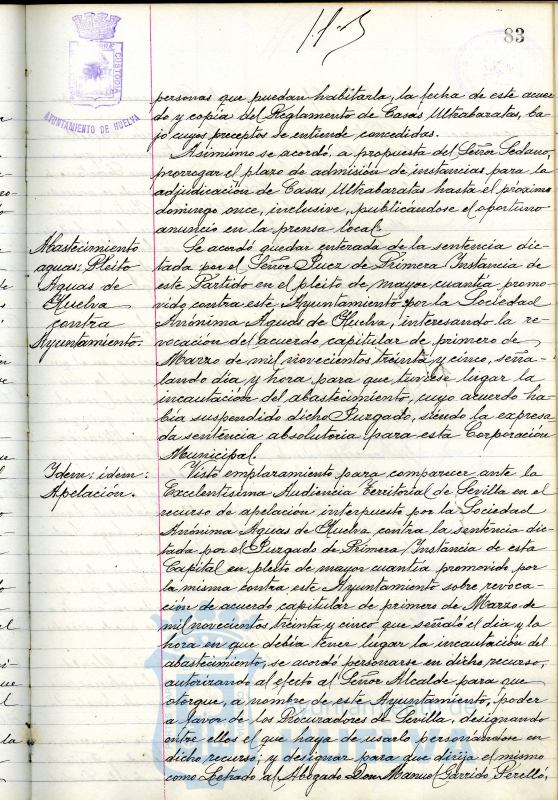 83
CUSTODIA
AYUNTAMIENTO DE HUELVA
personas que puedan habitarla, la fecha de este acuer
do y copia del Reglamento de Casas Ultrabaratas, ba-
jo cuyos preceptos se entiende concedidas.
Asimismo se acordó, a propuesta del Señor Sedano,
prorrogar el plazo de admisión de instancias para la
adjudicación de Casas Ultrabaratas hasta el próximo
domingo once, inclusive, publicándose el oportuno
anuncio en la prensa local.
Abastecimiento
aguas: Pleito
Aguas de
Huelva
contra
Ayuntamiento.
Se acordó quedar enterada de la sentencia dic-
tada por el Señor Juez de Primera Instancia de
este Partido en el pleito de mayor cuantía promo-
vido contra este Ayuntamiento por la Sociedad
Anónima Aguas de Huelva, interesando la re-
vocación del acuerdo capitular de primero de
Marzo de mil novecientos treinta y cinco, seña-
lando día y hora para que tuviese lugar la
incautación del abastecimiento, cuyo acuerdo ha-
bía suspendido dicho Juzgado, siendo la expresa
da sentencia absolutoria para esta Corporación
Municipal.
Idem: idem:
Apelación.
Visto emplazamiento para comparecer ante la
Excelentísima Audiencia Territorial de Sevilla en el
recurso de apelación interpuesto por la Sociedad
Anónima Aguas de Huelva contra la sentencia dic-
tada por el Juzgado de Primera Instancia de esta
Capital en pleito de mayor cuantía promovido por
la misma contra este Ayuntamiento sobre revoca-
ción de acuerdo capitular de primero de Marzo de
mil novecientos treinta y cinco que señaló el día y la
hora en que debía tener lugar la incautación del
abastecimiento, se acordó personarse en dicho recurso,
autorizando al efecto al Señor Alcalde para que
otorgue, a nombre de este Ayuntamiento, poder
a favor de los Procuradores de Sevilla, designando
entre ellos el que haya de usarlo personándose en
dicho recurso; y designar para que dirija el mismo
como Letrado al Abogado Don Manuel Garrido Perelló,